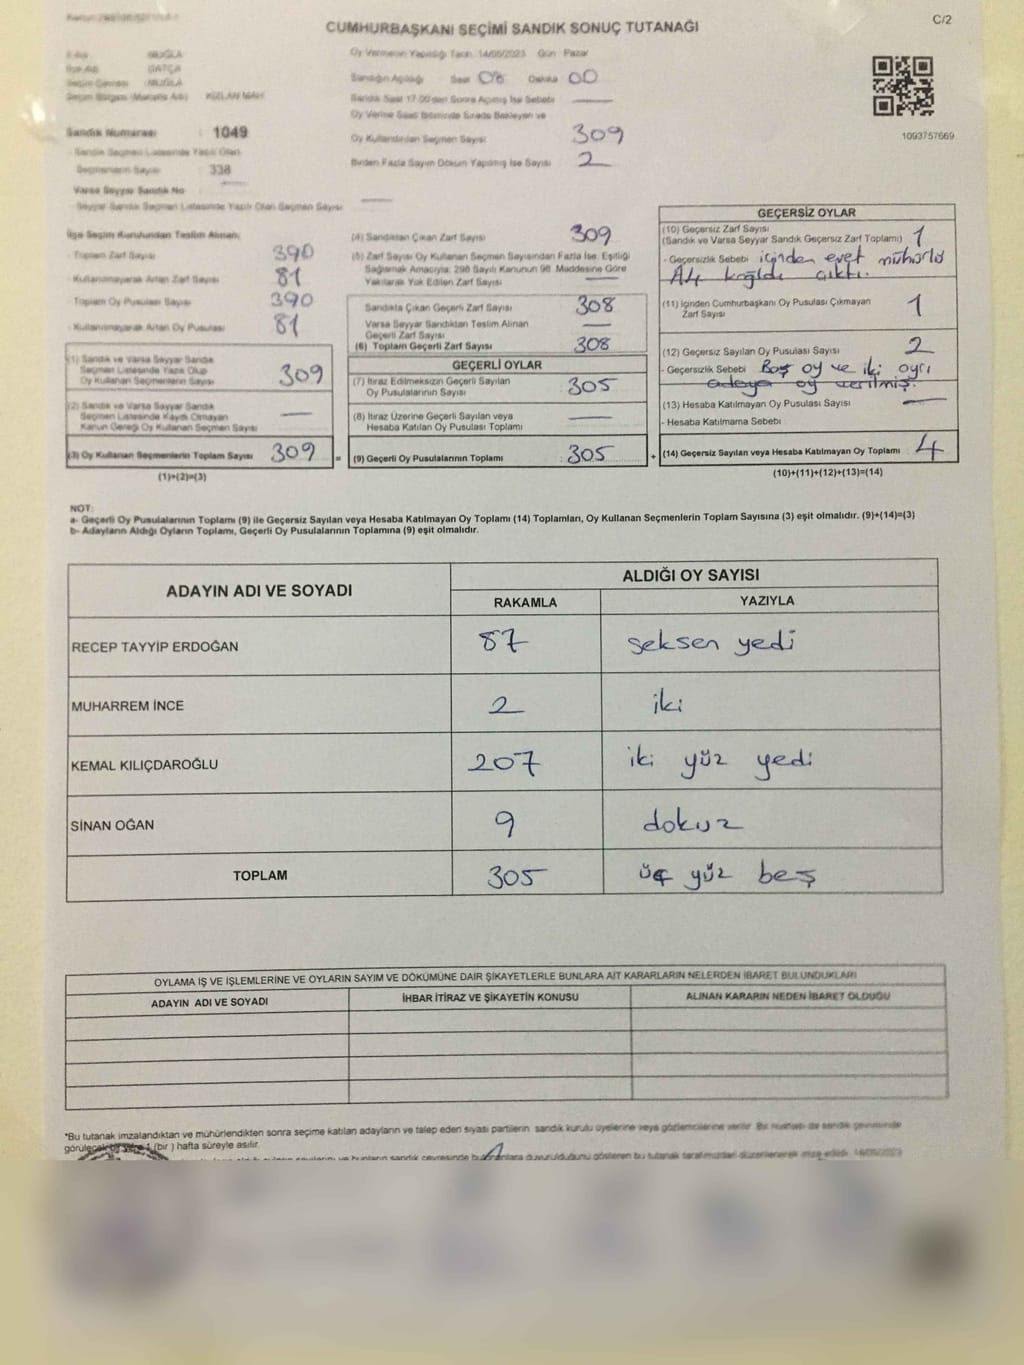 CUMHURBAŞKANI SEÇİMİ SANDIK SONUÇ TUTANAĞI
C/2
İli Adı : MUĞLA
İlçe Adı : DATÇA
Seçim Çevresi : MUĞLA
Seçim Bölgesi (Mahalle Adı) : KIZLAN MAH.
Sandık Numarası : 1049
- Sandık Seçmen Listesinde Yazılı Olan
Seçmenlerin Sayısı : 338
Varsa Seyyar Sandık No
- Seyyar Sandık Seçmen Listesinde Yazılı Olan Seçmen Sayısı
Oy Vermenin Yapıldığı Tarih: 14/05/2023 Gün : Pazar
Sandığın Açıldığı Saat 08 Dakika 00
Sandık Saat 17:00'den Sonra Açılmış İse Sebebi
Oy Verme Saati Bitiminde Sırada Bekleyen ve
Oy Kullandırılan Seçmen Sayısı 309
Birden Fazla Sayım Döküm Yapılmış İse Sayısı 2
1093757669
İlçe Seçim Kurulundan Teslim Alınan;
- Toplam Zarf Sayısı 390
- Kullanılmayarak Artan Zarf Sayısı 81
- Toplam Oy Pusulası Sayısı 390
- Kullanılmayarak Artan Oy Pusulası 81
(1) Sandık ve Varsa Seyyar Sandık
Seçmen Listesinde Yazılı Olup
Oy Kullanan Seçmenlerin Sayısı 309
(2) Sandık ve Varsa Seyyar Sandık
Seçmen Listesinde Kaydı Olmayan
Kanun Gereği Oy Kullanan Seçmen Sayısı
(3) Oy Kullanan Seçmenlerin Toplam Sayısı 309 =
(1)+(2)=(3)
(4) Sandıktan Çıkan Zarf Sayısı 309
(5) Zarf Sayısı Oy Kullanan Seçmen Sayısından Fazla İse, Eşitliği
Sağlamak Amacıyla; 298 Sayılı Kanunun 98. Maddesine Göre
Yakılarak Yok Edilen Zarf Sayısı
Sandıkta Çıkan Geçerli Zarf Sayısı 308
Varsa Seyyar Sandıktan Teslim Alınan
Geçerli Zarf Sayısı
(6) Toplam Geçerli Zarf Sayısı 308
GEÇERLİ OYLAR
(7) İtiraz Edilmeksizin Geçerli Sayılan
Oy Pusulalarının Sayısı : 305
(8) İtiraz Üzerine Geçerli Sayılan veya
Hesaba Katılan Oy Pusulası Toplamı
(9) Geçerli Oy Pusulalarının Toplamı : 305 +
GEÇERSİZ OYLAR
(10) Geçersiz Zarf Sayısı
(Sandık ve Varsa Seyyar Sandık Geçersiz Zarf Toplamı) 1
- Geçersizlik Sebebi içinden evet mühürlü
A4 kağıdı çıktı.
(11) İçinden Cumhurbaşkanı Oy Pusulası Çıkmayan
Zarf Sayısı 1
(12) Geçersiz Sayılan Oy Pusulası Sayısı 2
- Geçersizlik Sebebi Boş oy ve iki ayrı
adaya oy verilmiş.
(13) Hesaba Katılmayan Oy Pusulası Sayısı
- Hesaba Katılmama Sebebi
(14) Geçersiz Sayılan veya Hesaba Katılmayan Oy Toplamı : 4
(10)+(11)+(12)+(13)=(14)
NOT:
a- Geçerli Oy Pusulalarının Toplamı (9) ile Geçersiz Sayılan veya Hesaba Katılmayan Oy Toplamı (14) Toplamları, Oy Kullanan Seçmenlerin Toplam Sayısına (3) eşit olmalıdır. (9)+(14)=(3)
b- Adayların Aldığı Oyların Toplamı, Geçerli Oy Pusulalarının Toplamına (9) eşit olmalıdır.
ADAYIN ADI VE SOYADI
ALDIĞI OY SAYISI
RAKAMLA YAZIYLA
RECEP TAYYİP ERDOĞAN 87 seksen yedi
MUHARREM İNCE 2 iki
KEMAL KILIÇDAROĞLU 207 iki yüz yedi
SİNAN OĞAN 9 dokuz
TOPLAM 305 üç yüz beş
OYLAMA İŞ VE İŞLEMLERİNE VE OYLARIN SAYIM VE DÖKÜMÜNE DAİR ŞİKAYETLERLE BUNLARA AİT KARARLARIN NELERDEN İBARET BULUNDUKLARI
ADAYIN ADI VE SOYADI İHBAR İTİRAZ VE ŞİKAYETİN KONUSU ALINAN KARARIN NEDEN İBARET OLDUĞU
*Bu tutanak imzalandıktan ve mühürlendikten sonra seçime katılan adayların ve talep eden siyasi partilerin sandık kurulu üyelerine veya gözlemcilerine verilir. Bir nüshası da sandık çevresinde
görülecek bir yere 1 (bir) hafta süreyle asılır.
duyurulduğunu gösteren bu tutanak tarafımızdan düzenlenerek imza edildi. 14/05/2023